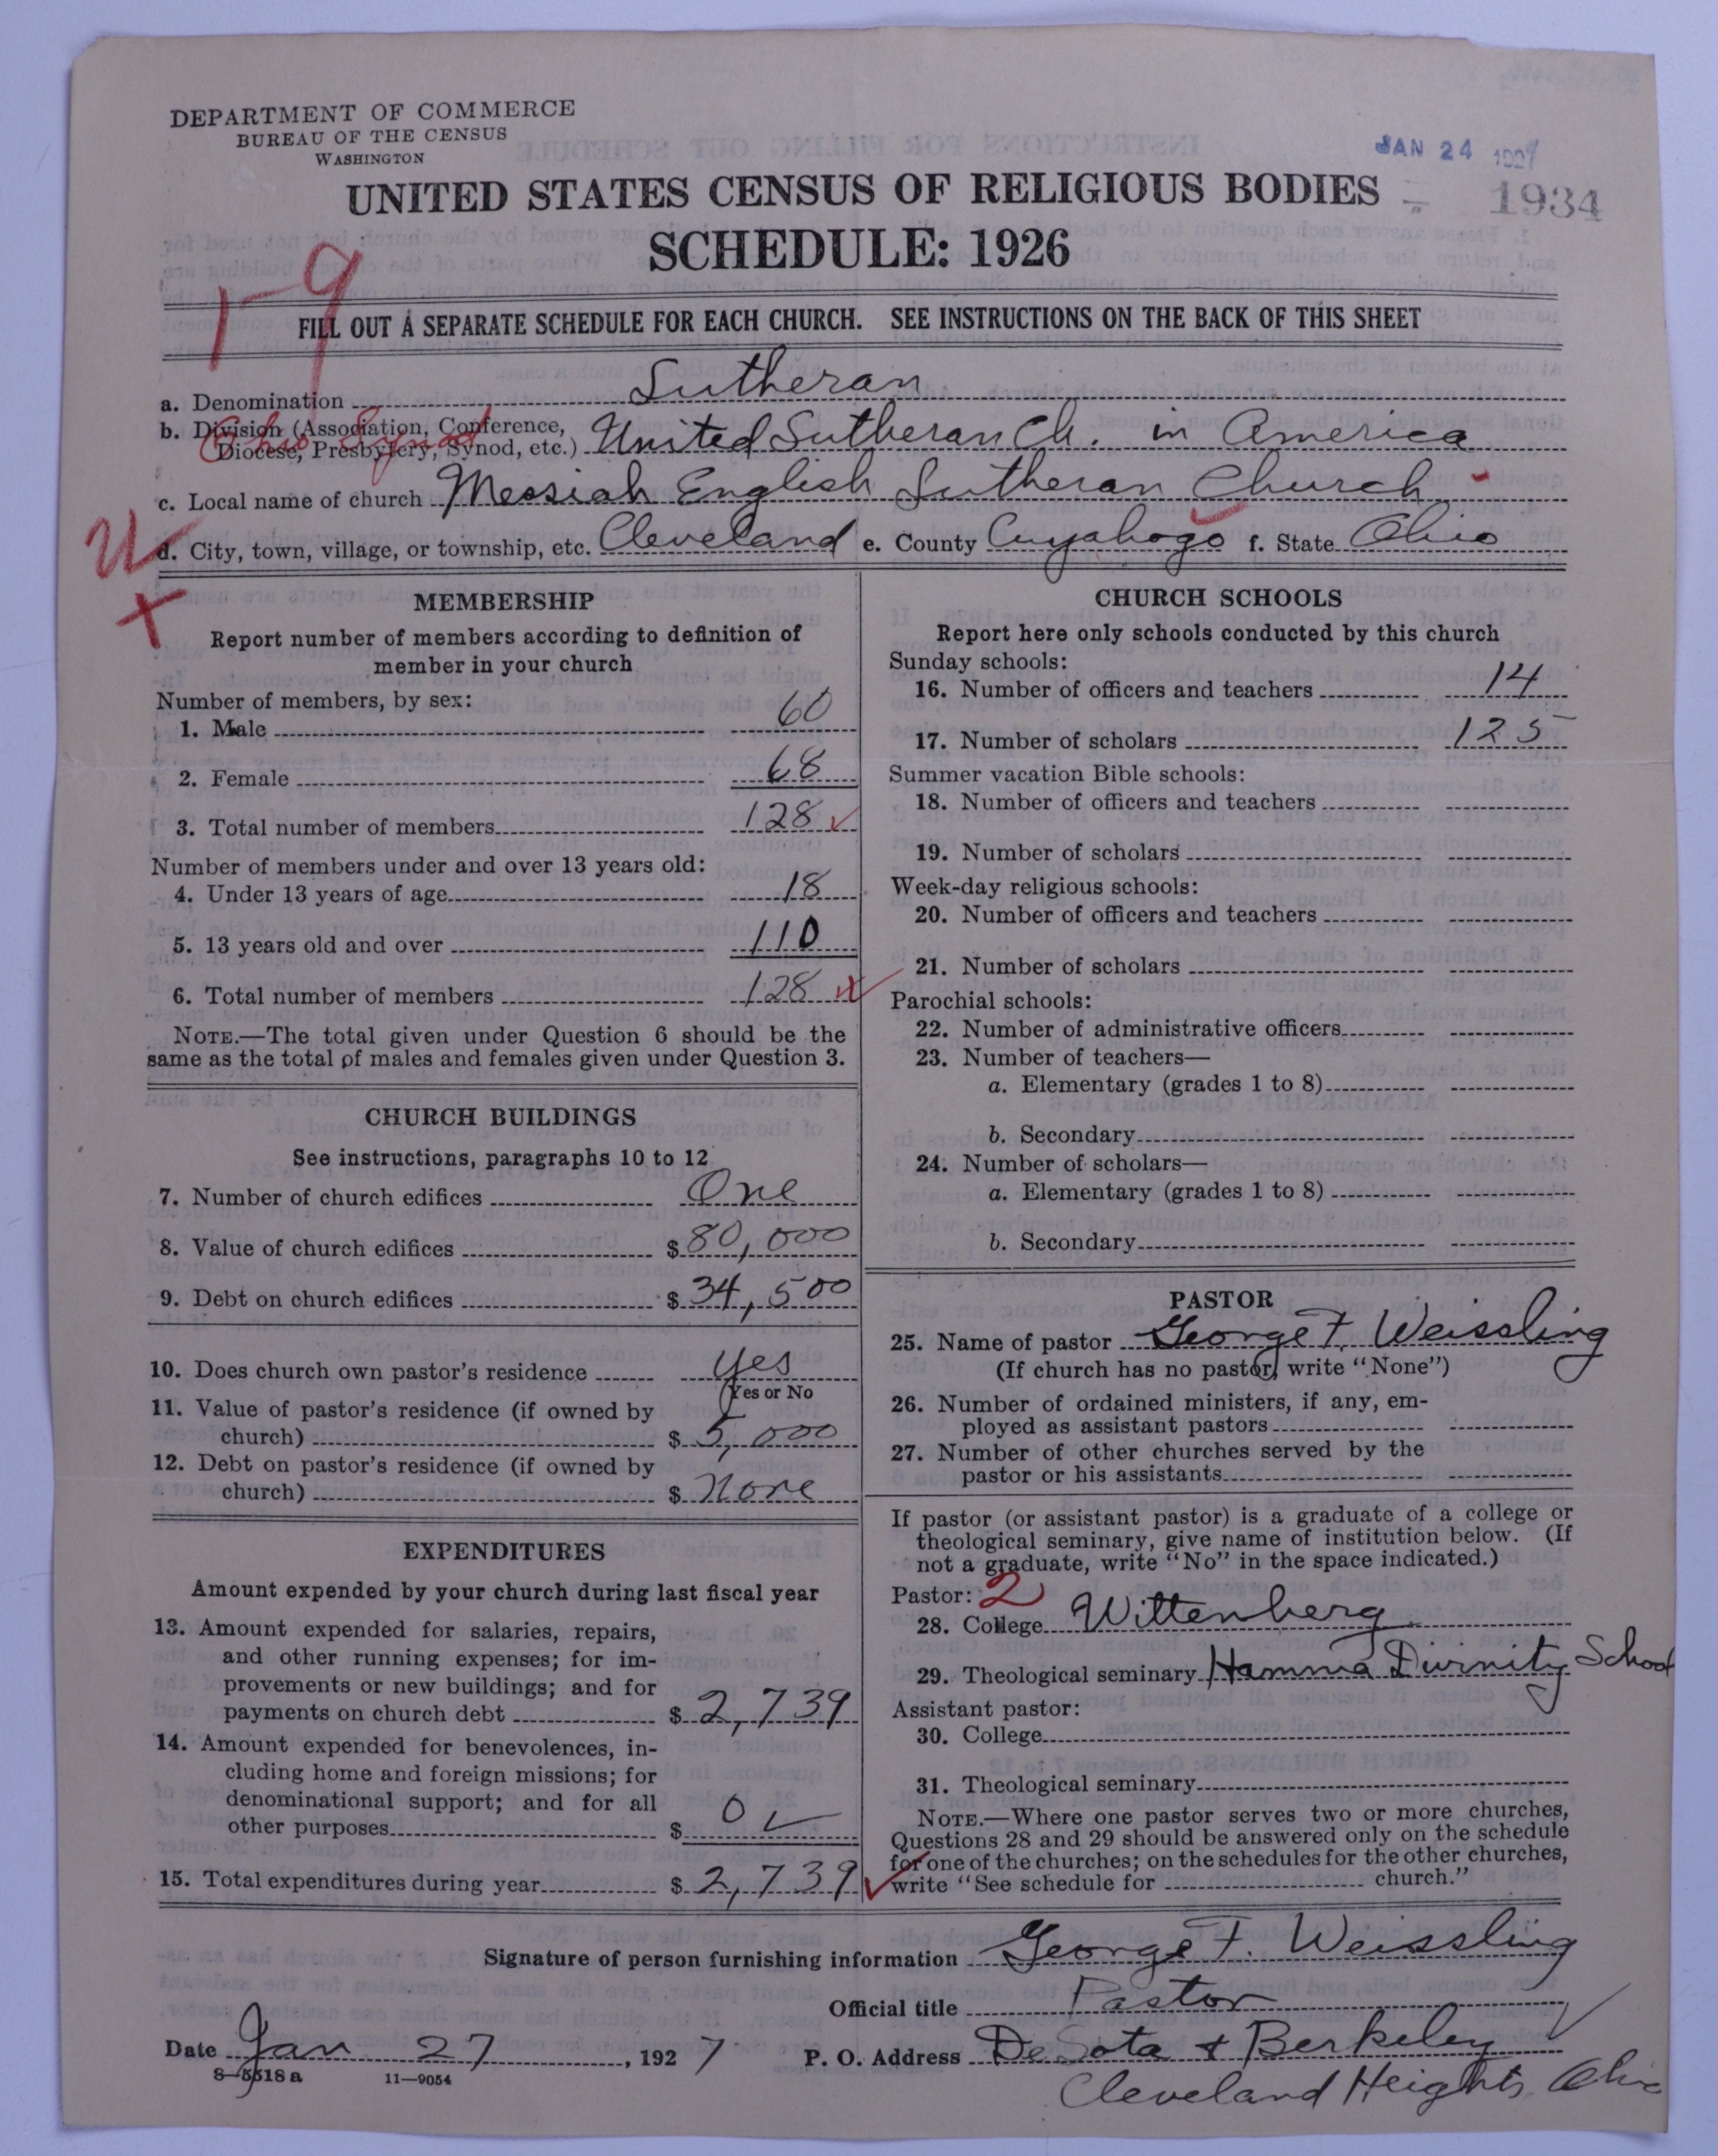 DEPARTMENT OF COMMERCE
BUREAU OF THE CENSUS
WASHINGTON
JAN 24 1927
UNITED STATES CENSUS OF RELIGIOUS BODIES
1934
SCHEDULE: 1926
1-9
FILL OUT A SEPARATE SCHEDULE FOR EACH CHURCH. SEE INSTRUCTIONS ON THE BACK OF THIS SHEET
a. Denomination Lutheran
b. Division (Association, Conference,
Diocese, Presbytery, Synod, etc.) United Lutheran Ch. in America
Ohio Synod
c. Local name of church Messiah English Lutheran Church
d. City, town, village, or township, etc. Cleveland e. County Cuyahogo f. State Ohio
MEMBERSHIP
Report number of members according to definition of
member in your church
Number of members, by sex:
1. Male 60
2. Female 68
3. Total number of members 128
Number of members under and over 13 years old:
4. Under 13 years of age 18
5. 13 years old and over 110
6. Total number of members 128
NOTE.—The total given under Question 6 should be the
same as the total of males and females given under Question 3.
CHURCH BUILDINGS
See instructions, paragraphs 10 to 12
7. Number of church edifices One
8. Value of church edifices $ 80,000
9. Debt on church edifices $ 34,500
10. Does church own pastor's residence yes
(Yes or No
11. Value of pastor's residence (if owned by
church) $ 5,000
12. Debt on pastor's residence (if owned by
church) $ None
EXPENDITURES
Amount expended by your church during last fiscal year
13. Amount expended for salaries, repairs,
and other running expenses; for im-
provements or new buildings; and for
payments on church debt $ 2,739
14. Amount expended for benevolences, in-
cluding home and foreign missions; for
denominational support; and for all
other purposes $ 0
15. Total expenditures during year $ 2,739
CHURCH SCHOOLS
Report here only schools conducted by this church
Sunday schools:
16. Number of officers and teachers 14
17. Number of scholars 125
Summer vacation Bible schools:
18. Number of officers and teachers
19. Number of scholars
Week-day religious schools:
20. Number of officers and teachers
21. Number of scholars
Parochial schools:
22. Number of administrative officers
23. Number of teachers—
a. Elementary (grades 1 to 8)
b. Secondary
24. Number of scholars—
a. Elementary (grades 1 to 8)
b. Secondary
PASTOR
25. Name of pastor George F. Weissling
(If church has no pastor, write "None")
26. Number of ordained ministers, if any, em-
ployed as assistant pastors
27. Number of other churches served by the
pastor or his assistants
If pastor (or assistant pastor) is a graduate of a college or
theological seminary, give name of institution below. (If
not a graduate, write "No" in the space indicated.)
Pastor: 2
28. College Wittenberg
29. Theological seminary Hamma Divinity School
Assistant pastor:
30. College
31. Theological seminary
NOTE.—Where one pastor serves two or more churches,
Questions 28 and 29 should be answered only on the schedule
for one of the churches; on the schedules for the other churches,
write "See schedule for church."
Signature of person furnishing information George F. Weissling
Official title Pastor
Date Jan 27, 1927 P. O. Address De Sota + Berkeley
8-5518 a 11—9054
Cleveland Heights, Ohio